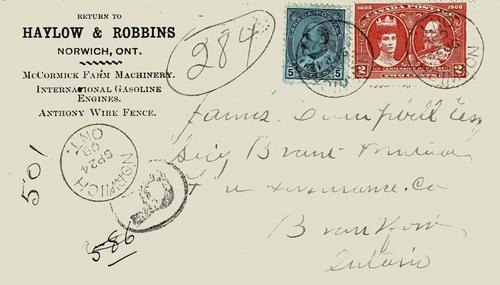 RETURN TO
HAYLOW & ROBBINS
NORWICH, ONT.
McCORMICK FARM MACHINERY.
INTERNATIONAL GASOLINE
ENGINES.
ANTHONY WIRE FENCE.
284
CANADA POSTAGE
5 5
1608 CANADA POSTAGE 1908
2 2
TWO CENTS
Campbell Esq
Secy Brant
Fire Insurance. Co
Brantford,
Ontario
NORWICH
SP 24
08
ONT.
501
586